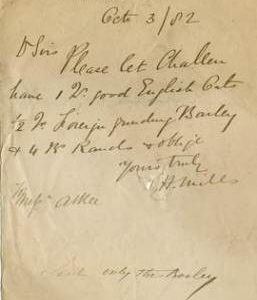 Octr 3/82
D Sirs
Please let Challen
have 1 Qr good English Oats
1/2 Qr Foreign grinding Barley
& 4 Bs & oblige
Yours truly
H. Mills
only the Barley